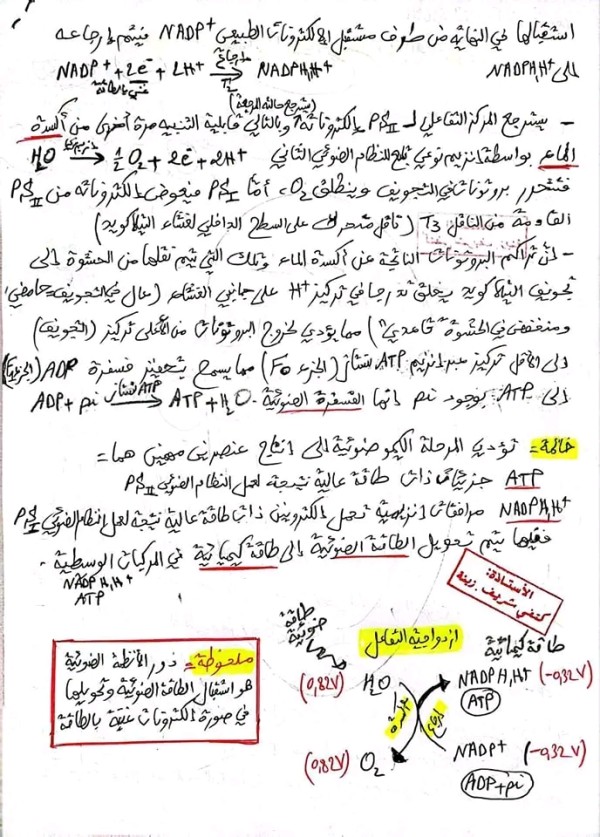 استقبالها في النهاية من طرف مستقبل الالكترونات الطبيعي NADP⁺ فيتم إرجاعه
إلى NADPH,H⁺
NADP⁺ + 2e⁻ + 2H⁺ → NADPH,H⁺
غني بالطاقة
(يسترجع حالته المرجعة)
- يسترجع المركز التفاعلي لـ PSII إلكتروناته وبالتالي قابلية التنبيه مرة أخرى من أكسدة
الماء بواسطة إنزيم نوعي تابع للنظام الضوئي الثاني H₂O → ½O₂ + 2e⁻ + 2H⁺
فتتحرر بروتونات في التجويف وينطلق O₂، أمّا PSI فيعوض إلكتروناته من PSII
القادمة من الناقل T3 (ناقل متحرك على السطح الداخلي لغشاء التيلاكويد)
- إنّ تراكم البروتونات الناتجة عن أكسدة الماء وتلك التي يتم نقلها من الحشوة إلى
تجويف التيلاكويد يخلق تدرجا في تركيز H⁺ على جانبي الغشاء (عال في التجويف "حامضي"
ومنخفض في الحشوة "قاعدي") مما يؤدي لخروج البروتونات من الأعلى تركيز (التجويف)
إلى الأقل تركيز عبر إنزيم ATP سنتاز (الجزء F₀) مما يسمح بتحفيز فسفرة ADP
إلى ATP بوجود pi إنها الفسفرة الضوئية. ADP + pi —ATP سنتاز→ ATP + H₂O
خاتمة = تؤدي المرحلة الكيموضوئية إلى إنتاج عنصرين مهمين هما =
ATP جزيئات ذات طاقة عالية نتيجة لعمل النظام الضوئي PSII
NADPH,H⁺ مرافقات إنزيمية تحمل إلكترونين ذات طاقة عالية نتيجة لعمل النظام الضوئي PSI
ففيها يتم تحويل الطاقة الضوئية إلى طاقة كيميائية في المركبات الوسطية.
NADPH,H⁺
ATP
الأستاذة:
كتفي شريف زينة
ملحوظة = دور الأنظمة الضوئية
هو استقبال الطاقة الضوئية وتحويلها
في صورة إلكترونات غنية بالطاقة
طاقة
ضوئية
ازدواجية التفاعل
طاقة كيميائية
(0,82V) H₂O
NADPH,H⁺ (-0,32V)
ATP
أكسدة
إرجاع
(0,82V) O₂
NADP⁺ (-0,32V)
ADP+pi